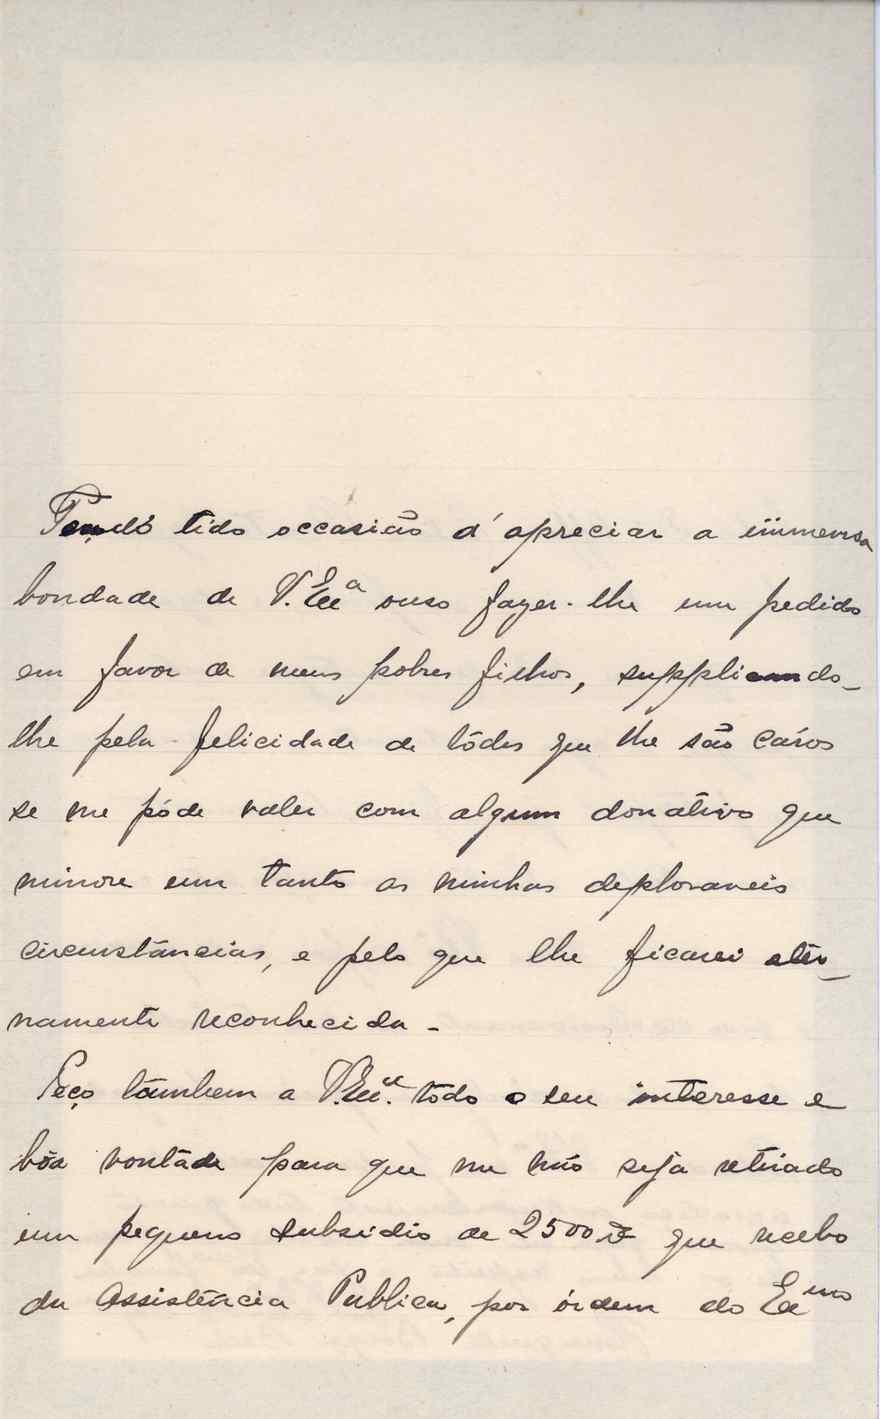 Tendo tido occasião d'apreciar a immensa
bondade de V. Exª ouso fazer-lhe um pedido
em favor de meus pobres filhos, supplicando-
lhe pela felicidade de tôdos que lhe são cáros
se me póde valer com algum donativo que
minore um tanto as minhas deploraveis
circumstâncias, e pelo que lhe ficarei eter-
namente reconhecida -
Peço tâmbem a V. Exª. todo o seu interesse e
bôa vontade para que me não seja retirado
um pequeno subsidio de 2500 rs que recebo
da Assistência Publica, por órdem do Exmo